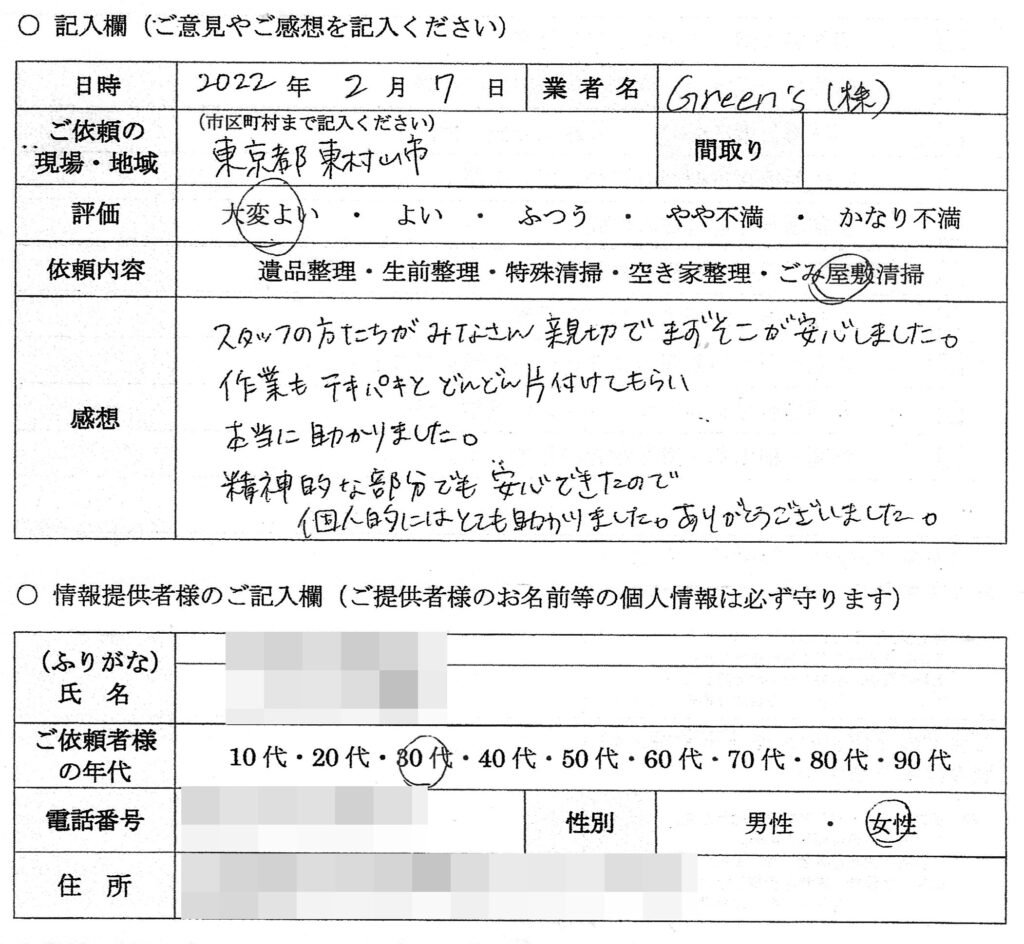 〇 記入欄（ご意見やご感想を記入ください）
日時 2022 年 2 月 7 日 業者名 Green's (株)
ご依頼の現場・地域 （市区町村まで記入ください） 東京都東村山市 間取り
評価 大変よい ・ よい ・ ふつう ・ やや不満 ・ かなり不満
依頼内容 遺品整理・生前整理・特殊清掃・空き家整理・ごみ屋敷清掃
感想
スタッフの方たちがみなさん親切でまずそこが安心しました。
作業もテキパキとどんどん片付けてもらい
本当に助かりました。
精神的な部分でも安心できたので
個人的にはとても助かりました。ありがとうございました。
〇 情報提供者様のご記入欄（ご提供者様のお名前等の個人情報は必ず守ります）
（ふりがな）
氏 名
ご依頼者様の年代 10代・20代・30代・40代・50代・60代・70代・80代・90代
電話番号 性別 男性 ・ 女性
住 所